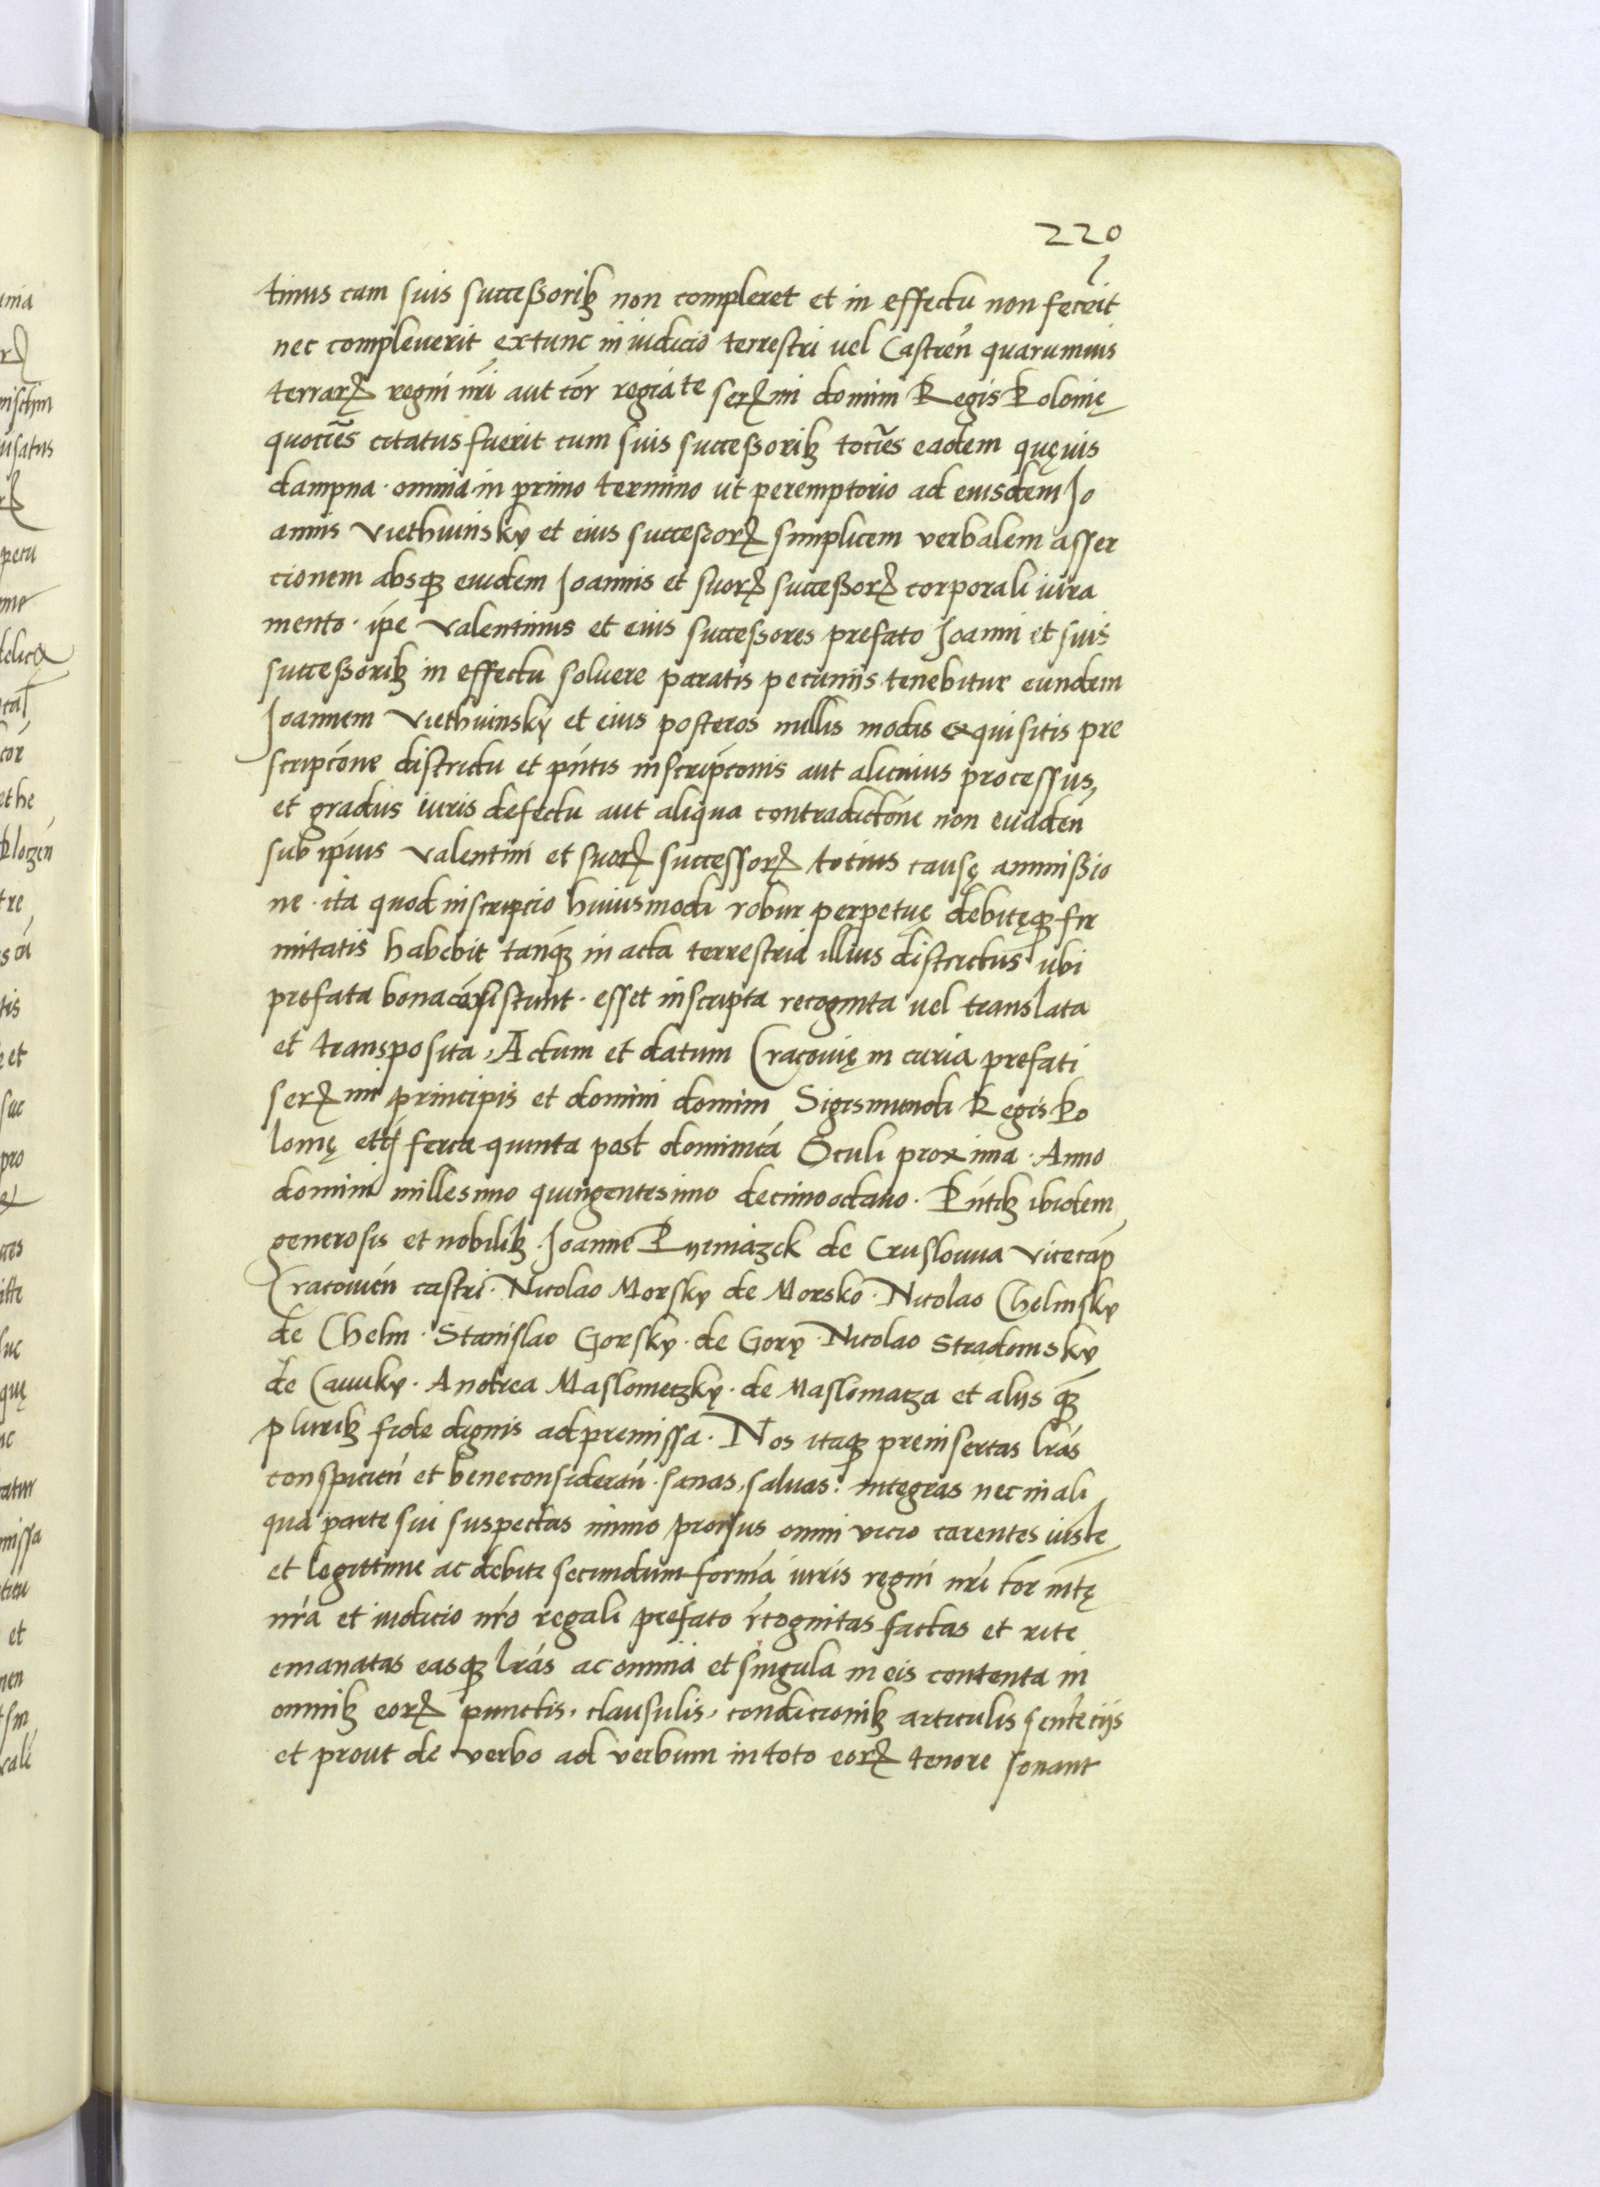 220
tinus cum suis successoribꝫ non compleret et in effectu non fecerit
nec compleverit extunc in iudicio terrestri vel Castren̄ quarumvis
terrarꝝ regni nr̄i aut cor̄ regia te serꝫmi domini Regis Polonię
quocies̄ citatus fuerit cum suis successoribꝫ tocies̄ eadem quęvis
dampna · omnia in primo termino ut peremptorio ad eiusdem Jo
annis Viethvinsky et eius successorꝝ simplicem verbalem asser
cionem absqꝫ eiusdem Joannis et suorꝝ successorꝝ corporali iura
mento · ip̄e Valentinus et eius successores prefato Joanni et suis
successoribꝫ in effectu solvere paratis pecuniis tenebitur eundem
Joannem Viethvinsky et eius posteros nullis modis exquisitis pre
scripcōne districtu et pn̄tis inscripcōnis aut alicuius processus,
et gradus iuris defectu aut aliqua contradictōne non evaden̄
sub ip̄ius Valentini et suorꝝ successorꝝ totius causę amissio
ne · ita quod inscripcio huiusmodi robur perpetuę debitęqꝫ fir
mitatis habebit tanqꝫ in acta terrestria illius districtus ubi
prefata bona consistunt · esset inscripta recognita vel translata
et transposita, Actum et datum Cracovię in curia prefati
serꝫmi principis et domini domini Sigismundi Regis Po
lonię etcꝫ feria quinta post dominicā Oculi proxima · Anno
domini millesimo quingentesimo decimooctavo · Pn̄tibꝫ ibidem,
generosis et nobilibꝫ · Joanne Pyeniazek de Cruslowa vicecap̄
Cracovien̄ castri · Nicolao Morsky de Morsko · Nicolao Chelmsky
de Chelm · Stanislao Gorsky · de Gory · Nicolao Stradomsky
de Cawky · Andrea Maslomeczky · de Maslomacza et aliis qꝫ
pluribꝫ fide dignis ad premissa · Nos itaqꝫ preinsertas lr̄as
conspicien̄ et bene consideran̄ · sanas, salvas: integras nec in ali
qua parte sui suspectas immo prorsus omni vicio carentes iuste
et legittime ac debite secundum formā iuris regni nr̄i cor mt̄ę
nr̄a et iudicio nr̄o regali prefato rc̄ognitas factas et rite
emanatas easqꝫ lr̄as ac omnia et singula in eis contenta in
omnibꝫ eorꝝ punctis, clausulis, condicionibꝫ articulis sentēciis
et prout de verbo ad verbum in toto eorꝝ tenore sonant